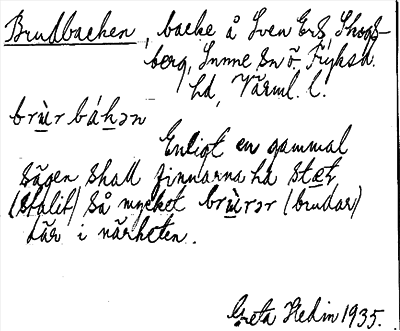 Brudbacken, backe å Sven Ers, Skogs-
berg, Lunne sn Ö. Fryksd.
hd, Värml. l.
brù̲r báh̲ən
Enligt en gammal
sägen skall finnarna ha stæ̲t
(stälit) så mycket brù̲rər (brudar)
där i närheten.
Greta Hedin 1935.